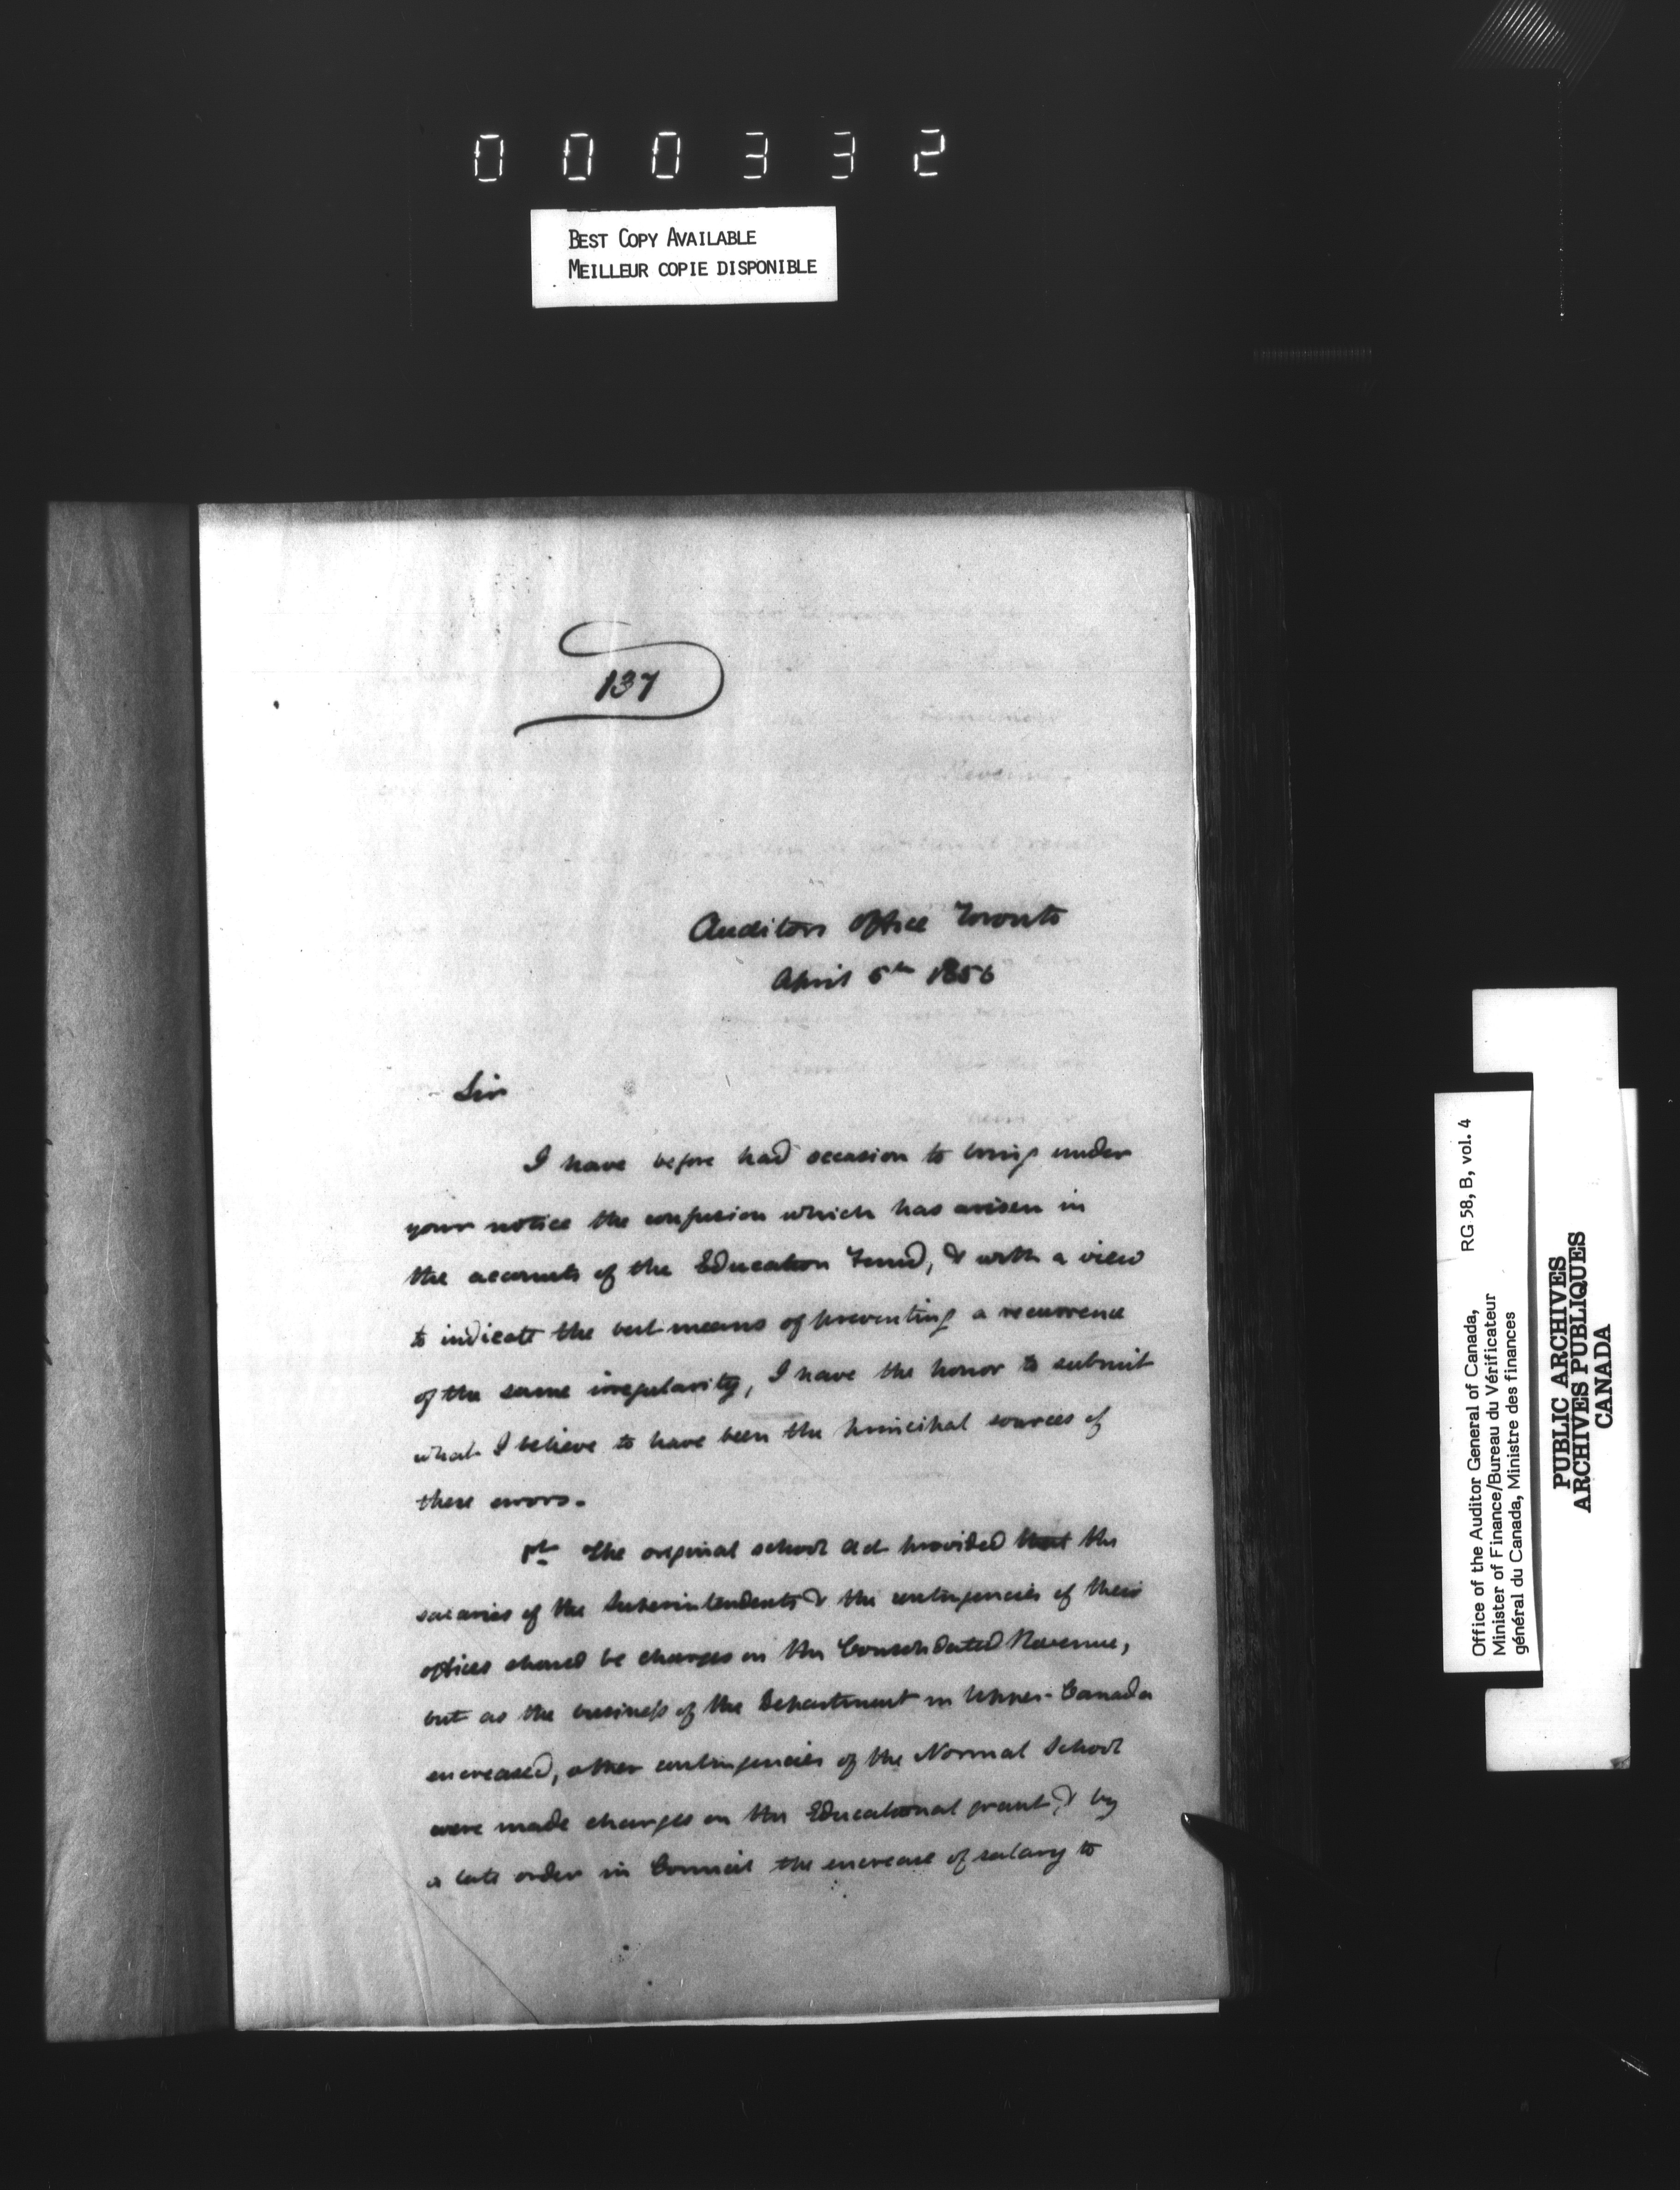 000332
BEST COPY AVAILABLE
MEILLEUR COPIE DISPONIBLE
137
Auditors Office Toronto
April 5th 1856
Sir
I have before had occasion to bring under
your notice the confusion which has arisen in
the accounts of the Education Fund, & with a view
to indicate the best means of preventing a recurrence
of the same irregularity, I have the honor to submit
what I believe to have been the principal sources of
these errors.
1st The original school Act provided that the
salaries of the Superintendents & the contingencies of their
offices should be charges on the Consolidated Revenue,
but as the business of the Department in Upper-Canada
encreased, other contingencies of the Normal School
were made charges on the Educational grant, & by
a late order in Council the encrease of salary to
Office of the Auditor General of Canada, RG 58, B, vol. 4
Minister of Finance/Bureau du Vérificateur
général du Canada, Ministre des finances
PUBLIC ARCHIVES
ARCHIVES PUBLIQUES
CANADA